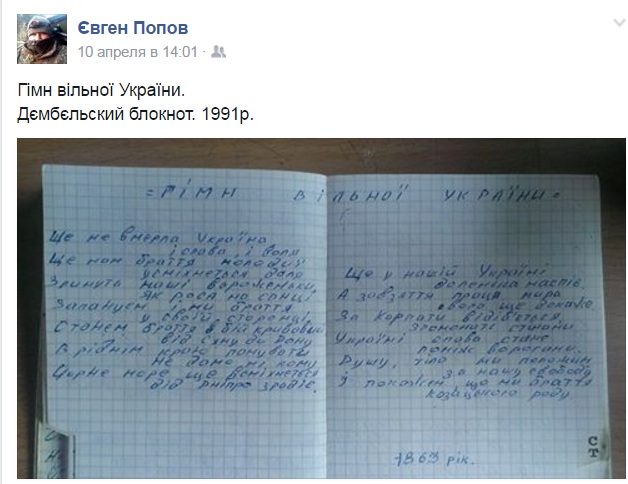 Євген Попов
10 апреля в 14:01 ·
Гімн вільної України.
Дємбєльский блокнот. 1991р.
= ГІМН ВІЛЬНОЇ УКРАЇНИ =
Ще не вмерла Україна
і слава, і воля
Ще нам браття молодиї
усміхнеться доля
Згинуть наші вороженьки,
Як роса на сонці
Запануєм і ми браття
у своїй сторонці.
Станем браття в бій кривавий
від Сяну до Дону
В ріднім краю панувати
не дамо ні кому
Чорне море ще всміхнеться
дід Дніпро зрадіє.
Ще у нашій Україні
доленька наспіє.
А завзяття праця щира
свого ще докаже
За Карпати відіб'ється,
згомонить степами
України слава стане
поміж ворогами.
Душу, тіло ми положим
за нашу свободу
І покажем що ми браття
козацького роду
1863 рік.
СТ